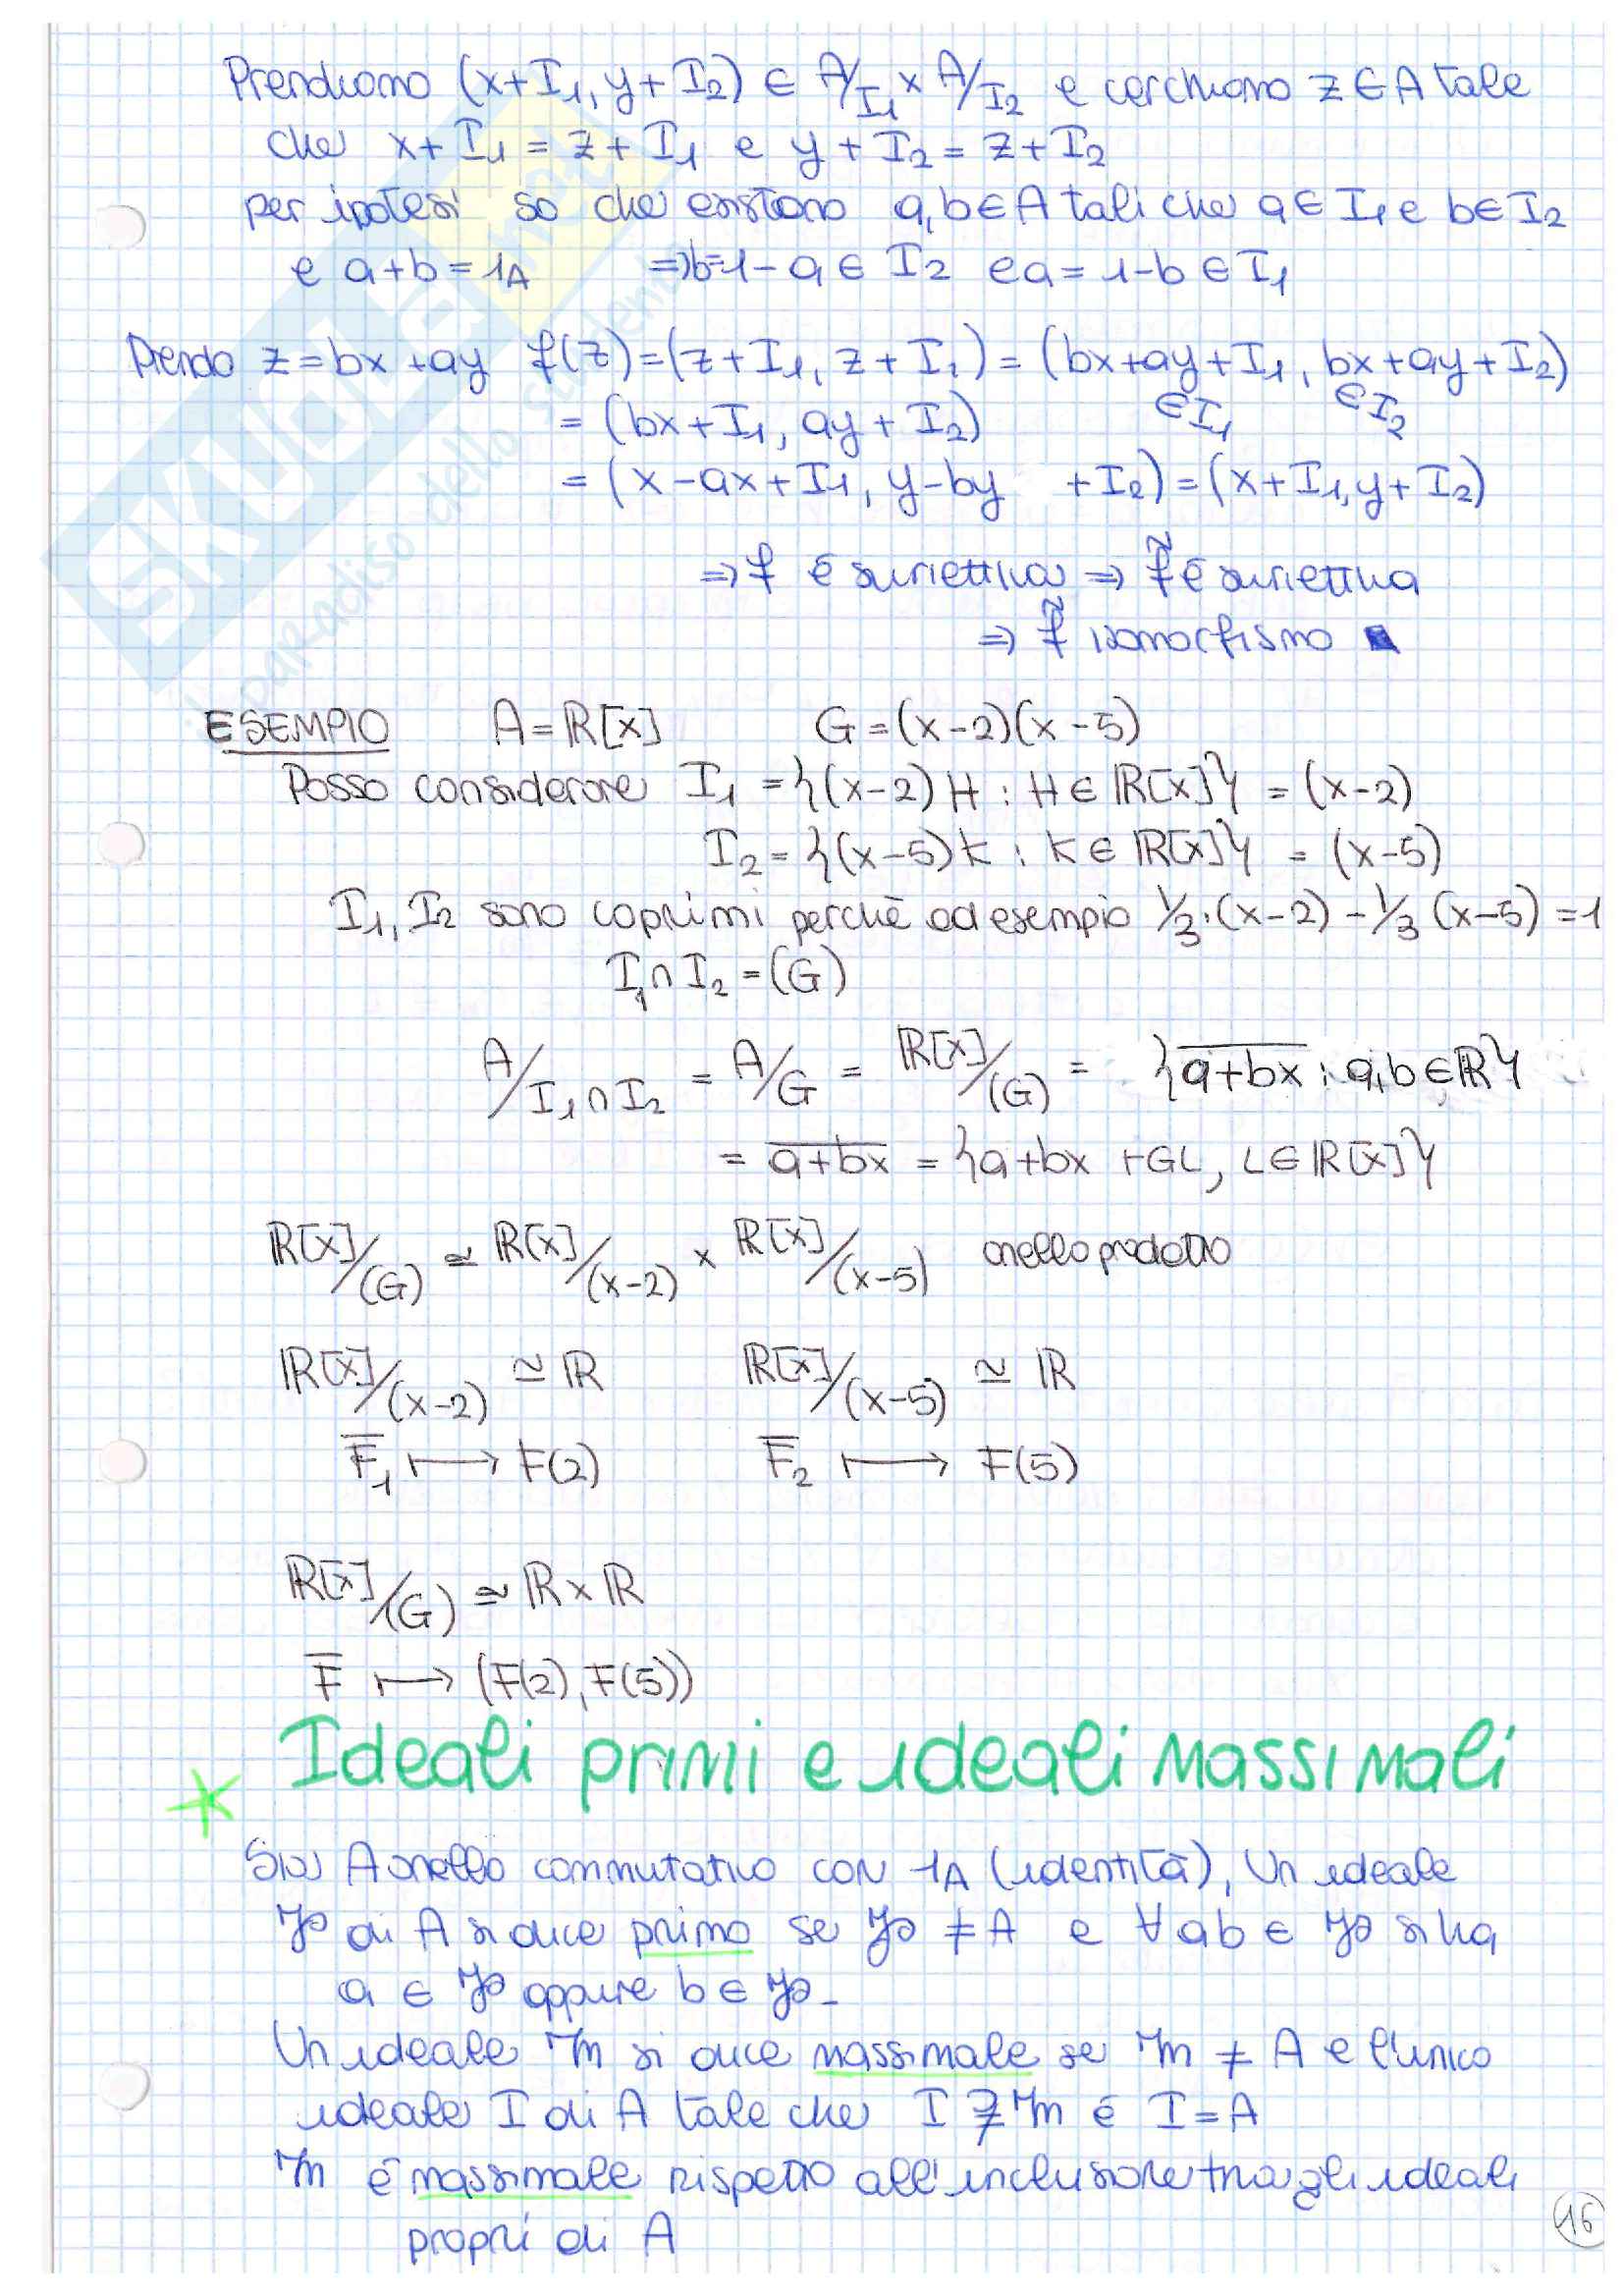 Prendiamo (x+I₁, y+I₂) ∈ A/I₁ × A/I₂ e cerchiamo z ∈ A tale
che x+I₁ = z+I₁ e y+I₂ = z+I₂
per ipotesi so che esistono a,b ∈ A tali che a ∈ I₁ e b ∈ I₂
e a+b = 1A ⇒ b=1-a ∈ I₂ e a = 1-b ∈ I₁
Prendo z = bx + ay f(z) = (z+I₁, z+I₁) = (bx+ay+I₁, bx+ay+I₂)
∈I₁ ∈I₂
= (bx+I₁, ay+I₂)
= (x-ax+I₁, y-by +I₂) = (x+I₁, y+I₂)
⇒ f è suriettiva ⇒ f̃ è suriettiva
⇒ f̃ isomorfismo ■
ESEMPIO A = ℝ[x] G = (x-2)(x-5)
Posso considerare I₁ = {(x-2)H : H ∈ ℝ[x]} = (x-2)
I₂ = {(x-5)K : K ∈ ℝ[x]} = (x-5)
I₁, I₂ sono coprimi perchè ad esempio 1/3·(x-2) - 1/3 (x-5) = 1
I₁ ∩ I₂ = (G)
A/I₁∩I₂ = A/G = ℝ[x]/(G) = {a̅+̅b̅x̅ : a,b ∈ ℝ}
= a̅+̅b̅x̅ = {a+bx +GL, L ∈ ℝ[x]}
ℝ[x]/(G) ≃ ℝ[x]/(x-2) × ℝ[x]/(x-5) anello prodotto
ℝ[x]/(x-2) ≃ ℝ ℝ[x]/(x-5) ≃ ℝ
F̅₁ ⟼ F(2) F̅₂ ⟼ F(5)
ℝ[x]/(G) ≃ ℝ × ℝ
F̅ ⟼ (F(2), F(5))
Ideali primi e ideali massimali
Sia A anello commutativo con 1A (identità), Un ideale
℘ di A si dice primo se ℘ ≠ A e ∀ ab ∈ ℘ si ha
a ∈ ℘ oppure b ∈ ℘.
Un ideale m si dice massimale se m ≠ A e l'unico
ideale I di A tale che I ⊋ m è I = A
m è massimale rispetto all'inclusione tra gli ideali
propri di A
16
SKUOLA.net
il paradiso dello studente